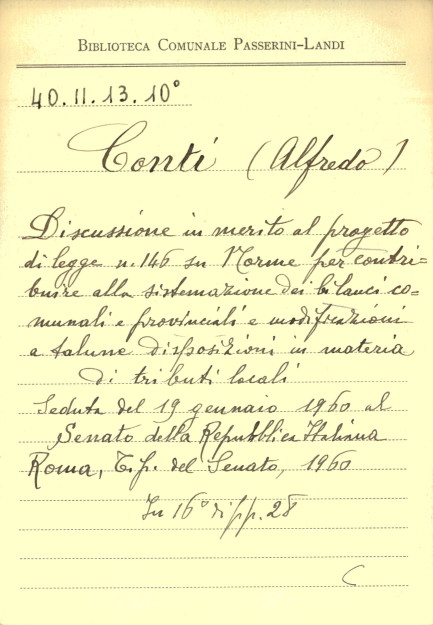 BIBLIOTECA COMUNALE PASSERINI-LANDI
40.II.13.10°
Conti (Alfredo)
Discussione in merito al progetto
di legge n. 146 su Norme per contri-
buire alla sistemazione dei bilanci co-
munali e provinciali e modificazioni
a talune disposizioni in materia
di tributi locali
Seduta del 19 gennaio 1960 al
Senato della Repubblica Italiana
Roma, Tip. del Senato, 1960
In 16° di pp. 28
C